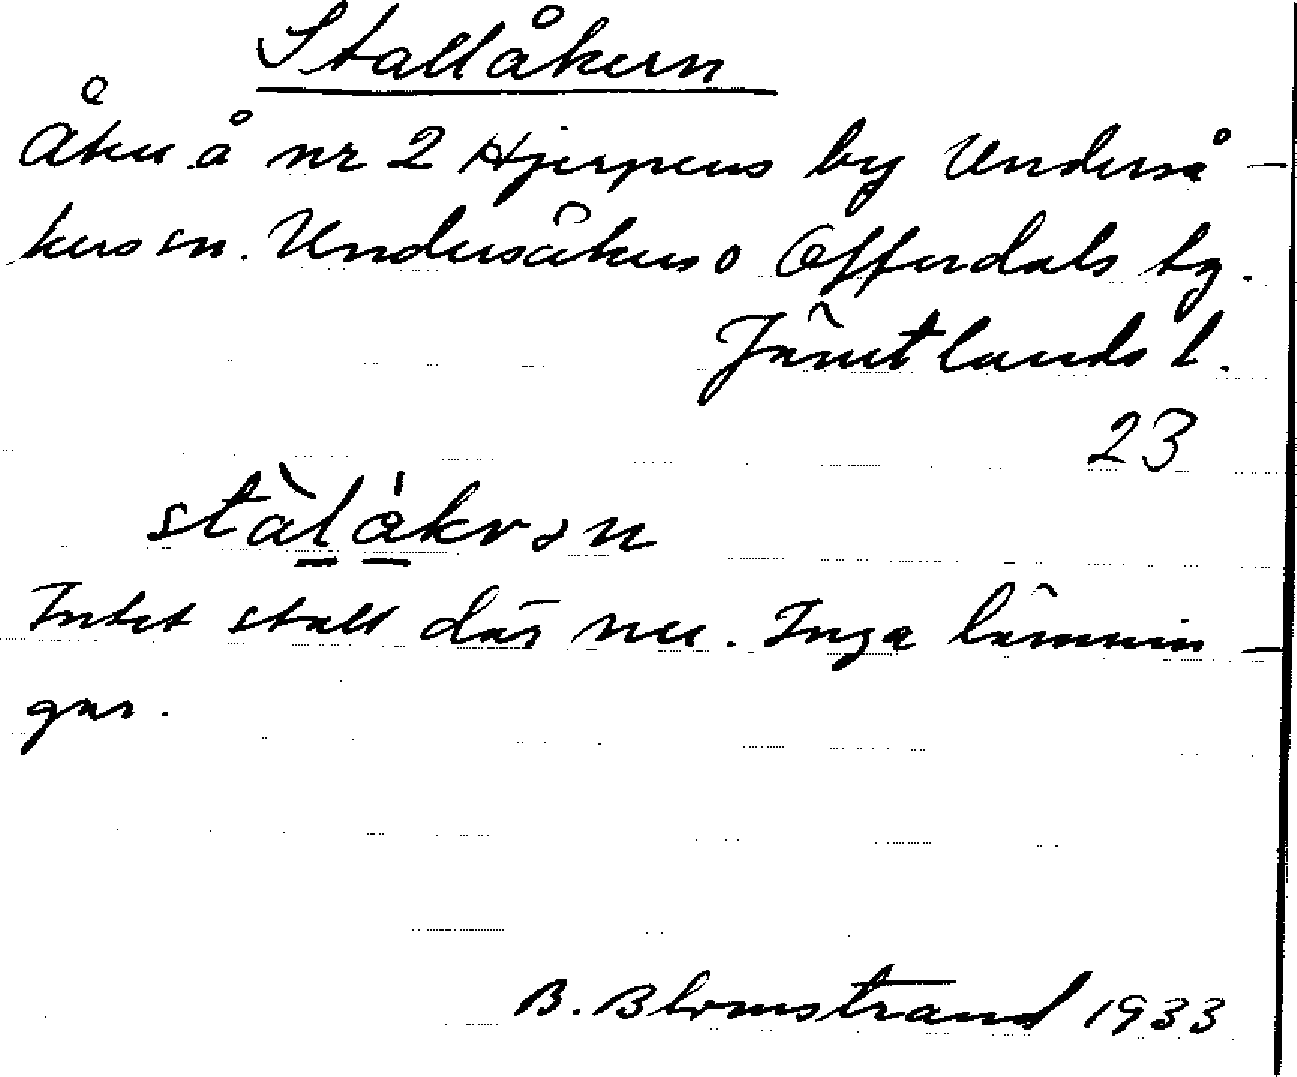 Stallåkern
Åker å nr 2 Hjerpens by Underså-
kers sn. Undersåkers o Offerdals tg.
Jämtlands l.
23
stàlåkrən
Intet stall där nu. Inga lämnin-
gar.
B. Blomstrand 1933